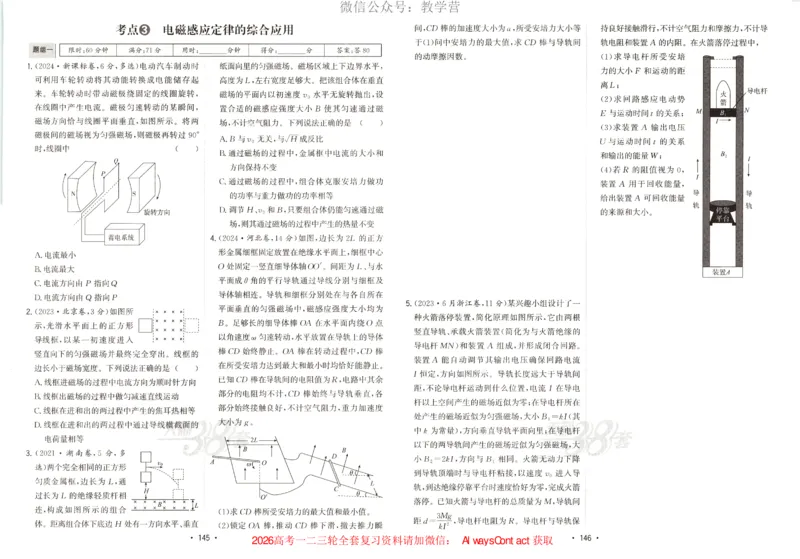 微信公众号：教学营
考点❸ 电磁感应定律的综合应用
题组一 限时:60分钟 满分:71分 用时:____分钟 得分:____分 答案:答90
1.(2024·新课标卷,6分,多选)电动汽车制动时
可利用车轮转动将其动能转换成电能储存起
来。车轮转动时带动磁极绕固定的线圈旋转,
在线圈中产生电流。磁极匀速转动的某瞬间,
磁场方向恰与线圈平面垂直,如图所示。将两
磁极间的磁场视为匀强磁场,则磁极再转过90°
时,线圈中 ( )
P
Q
N
S
旋转方向
蓄电系统
A.电流最小
B.电流最大
C.电流方向由P指向Q
D.电流方向由Q指向P
2.(2023·北京卷,3分)如图所
示,光滑水平面上的正方形
导线框,以某一初速度进入
竖直向下的匀强磁场并最终完全穿出。线框的
边长小于磁场宽度。下列说法正确的是 ( )
A.线框进磁场的过程中电流方向为顺时针方向
B.线框出磁场的过程中做匀减速直线运动
C.线框在进和出的两过程中产生的焦耳热相等
D.线框在进和出的两过程中通过导线横截面的
电荷量相等
3.(2021·湖南卷,5分,多
选)两个完全相同的正方形
匀质金属框,边长为L,通
过长为L的绝缘轻质杆相
连,构成如图所示的组合
体。距离组合体下底边H处有一方向水平、垂直
v₀
H
B
L
纸面向里的匀强磁场。磁场区域上下边界水平,
高度为L,左右宽度足够大。把该组合体在垂直
磁场的平面内以初速度v₀水平无旋转抛出,设
置合适的磁感应强度大小B使其匀速通过磁
场,不计空气阻力。下列说法正确的是 ( )
A.B与v₀无关,与√H成反比
B.通过磁场的过程中,金属框中电流的大小和
方向保持不变
C.通过磁场的过程中,组合体克服安培力做功
的功率与重力做功的功率相等
D.调节H、v₀和B,只要组合体仍能匀速通过磁
场,则其通过磁场的过程中产生的热量不变
4.(2024·河北卷,14分)如图,边长为2L的正方
形金属细框固定放置在绝缘水平面上,细框中心
O处固定一竖直细导体轴OO′。间距为L、与水
平面成θ角的平行导轨通过导线分别与细框及
导体轴相连。导轨和细框分别处在与各自所在
平面垂直的匀强磁场中,磁感应强度大小均为
B。足够长的细导体棒OA在水平面内绕O点
以角速度ω匀速转动,水平放置在导轨上的导体
棒CD始终静止。OA棒在转动过程中,CD棒
在所受安培力达到最大和最小时均恰好能静止。
已知CD棒在导轨间的电阻值为R,电路中其余
部分的电阻均不计,CD棒始终与导轨垂直,各
部分始终接触良好,不计空气阻力,重力加速度
大小为g。
2L
B
A
ω
O
O′
D
B
C
L
θ
θ
(1)求CD棒所受安培力的最大值和最小值。
(2)锁定OA棒,推动CD棒下滑,撤去推力瞬
· 145 ·
间,CD棒的加速度大小为a,所受安培力大小等
于(1)问中安培力的最大值,求CD棒与导轨间
的动摩擦因数。
5.(2023·6月浙江卷,11分)某兴趣小组设计了一
种火箭落停装置,简化原理如图所示,它由两根
竖直导轨、承载火箭装置(简化为与火箭绝缘的
导电杆MN)和装置A组成,并形成闭合回路。
装置A能自动调节其输出电压确保回路电流
I恒定,方向如图所示。导轨长度远大于导轨间
距,不论导电杆运动到什么位置,电流I在导电
杆以上空间产生的磁场近似为零;在导电杆所在
处产生的磁场近似为匀强磁场,大小B₁=kI(其
中k为常量),方向垂直导轨平面向里;在导电杆
以下的两导轨间产生的磁场近似为匀强磁场,大
小B₂=2kI,方向与B₁相同。火箭无动力下降
到导轨顶端时与导电杆粘接,以速度v₀进入导
轨,到达绝缘停靠平台时速度恰好为零,完成火箭
落停。已知火箭与导电杆的总质量为M,导轨间
距d=3Mg/kI²,导电杆电阻为R。导电杆与导轨保
持良好接触滑行,不计空气阻力和摩擦力,不计导
轨电阻和装置A的内阻。在火箭落停过程中,
(1)求导电杆所受安培
力的大小F和运动的距
离L;
(2)求回路感应电动势
E与运动时间t的关系;
(3)求装置A输出电压
U与运动时间t的关系
和输出的能量W;
(4)若R的阻值视为0,
装置A用于回收能量,
给出装置A可回收能量
的来源和大小。
火
箭
导电杆
M
B₁
N
I
B₂
I
I
导
轨
停靠
平台
导
轨
装置A
· 146 ·
2026高考一二三轮全套复习资料请加微信： AlwaysContact 获取